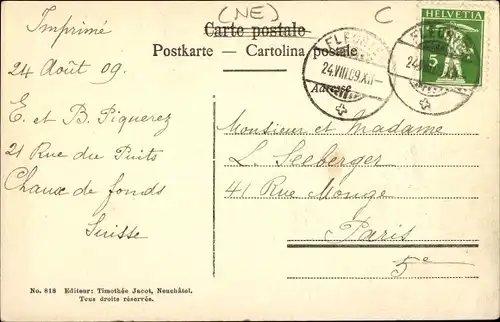 (NE)
C
Imprimé
Carte postale
Postkarte — Cartolina postale
HELVETIA
5
24.VIII.09.XII-
Adresse
24 Août 09.
E. et B. Piquerez
21 Rue du Puits
Chaux de fonds
Suisse
Monsieur et Madame
L. Seeberger
41 Rue Monge
Paris
5e
No. 818 Editeur: Timothée Jacot, Neuchâtel.
Tous droits réservés.